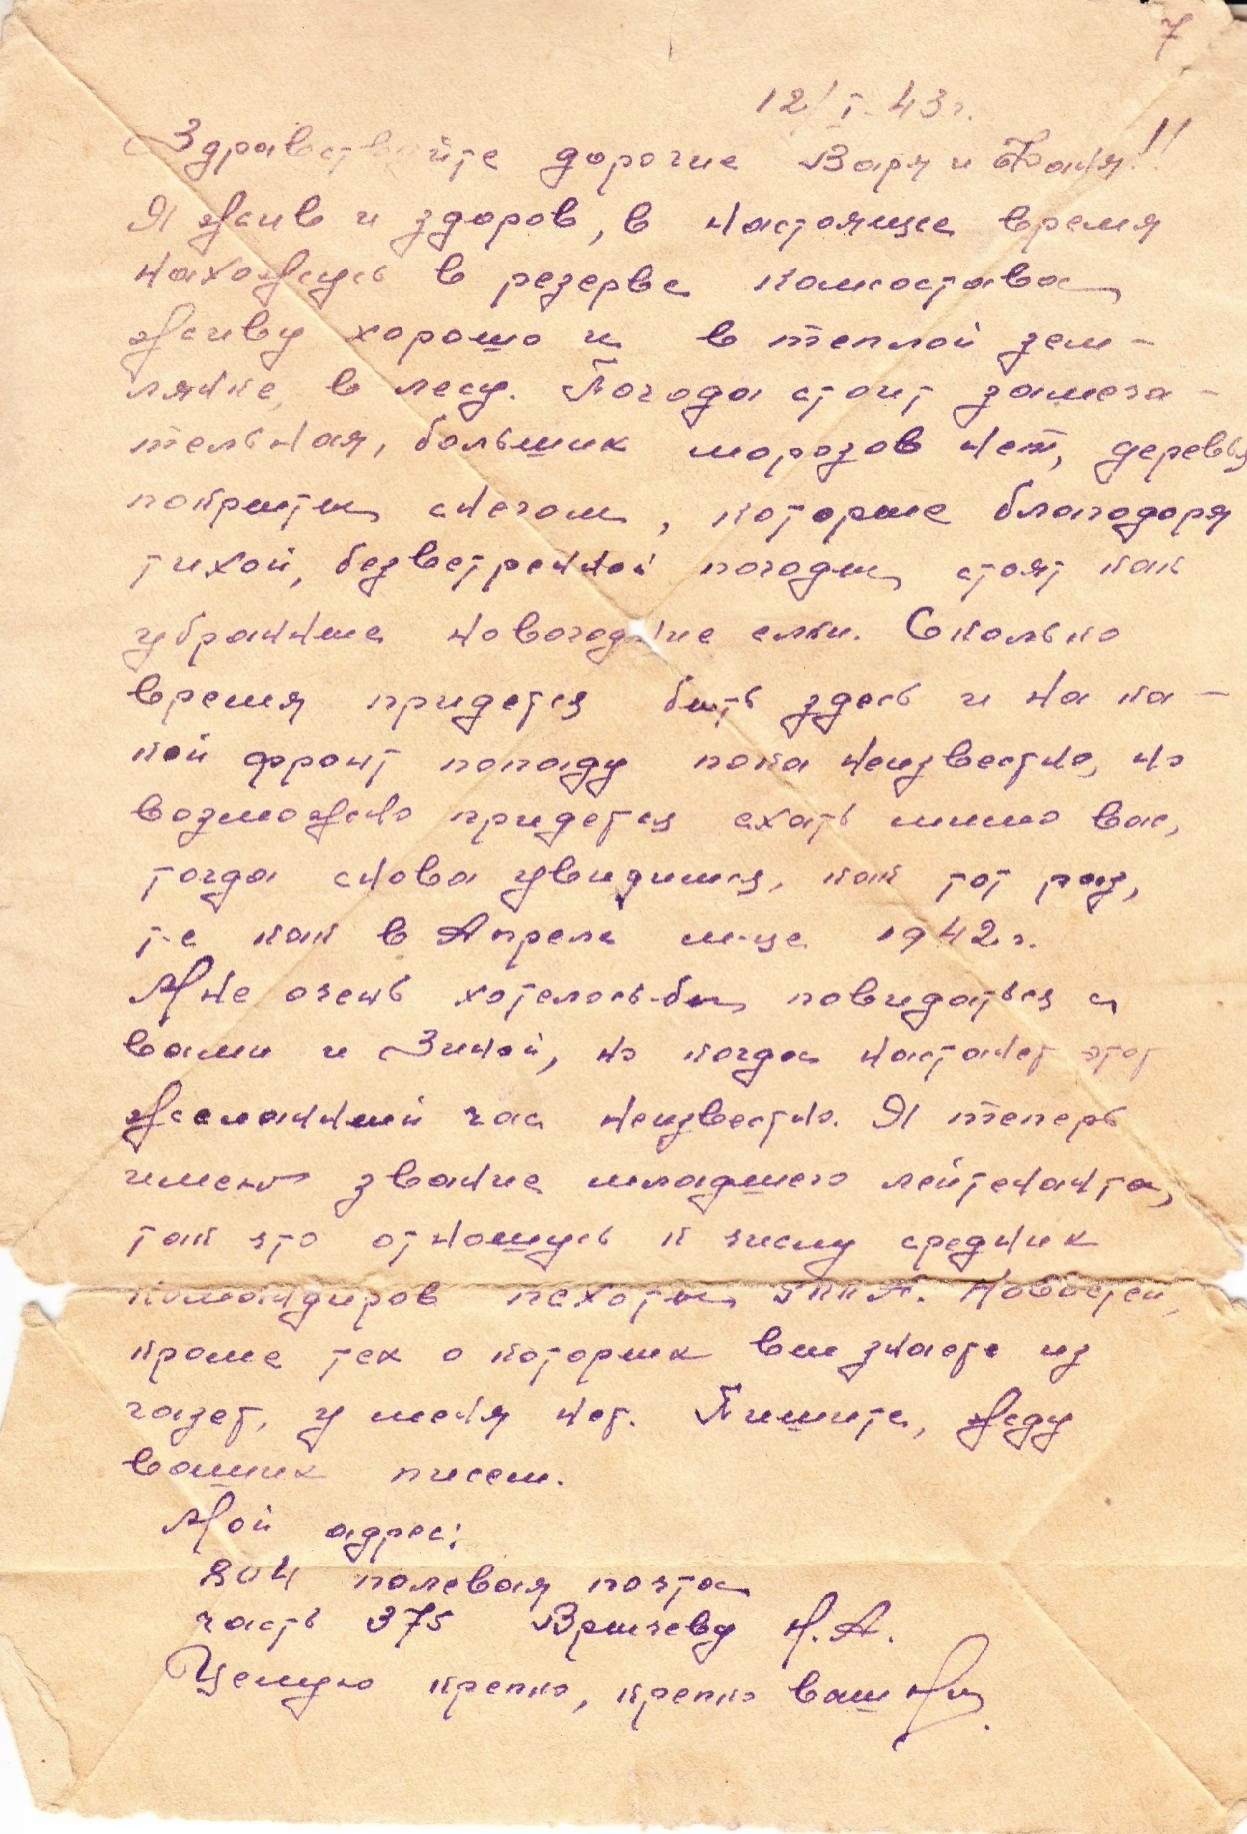 7
12/I-43г.
Здравствуйте дорогие Варя и Ваня!!
Я жив и здоров, в настоящее время
нахожусь в резерве комсостава
живу хорошо и в теплой зем-
лянке, в лесу. Погода стоит замеча-
тельная, больших морозов нет, деревья
покрыты снегом, которые благодоря
тихой, безветренной погоды стоят как
убранные новогодние елки. Сколько
время придется быть здесь и на ка-
кой фронт попаду пока неизвестно, но
возможно придется ехать мимо вас,
тогда снова увидимся, как тот раз,
т-е как в Апреле м-це 1942 г.
Мне очень хотелось-бы повидаться с
вами и Зиной, но когда настанет этот
желанный час неизвестно. Я теперь
имею звание младшего лейтенанта,
так что отношусь к числу средних
командиров пехоты РККА. Новостей,
кроме тех о которых вы знаете из
газет, у меня нет. Пишите, жду
ваших писем.
Мой адрес:
804 полевая почта
часть 375 Врычеву Н. А.
Целую крепко, крепко ваш